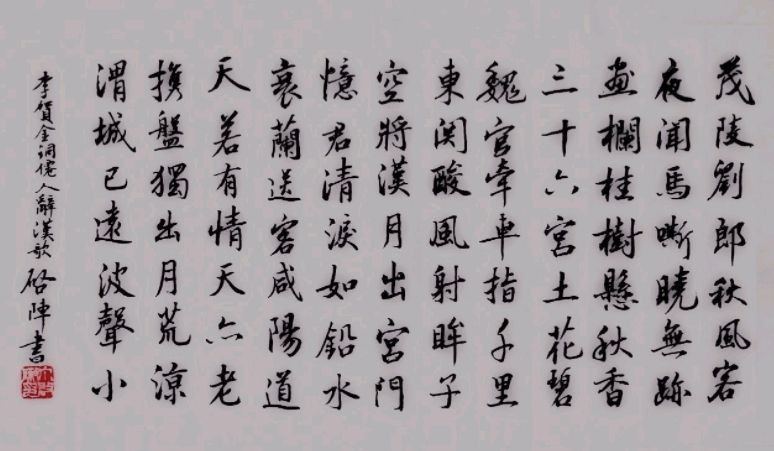 茂陵劉郎秋風客
夜聞馬嘶曉無跡
畫欄桂樹懸秋香
三十六宮土花碧
魏官牽車指千里
東関酸風射眸子
空將漢月出宮門
憶君清淚如鉛水
衰蘭送客咸陽道
天若有情天亦老
携盤獨出月荒涼
渭城已遠波聲小
李賀金銅僊人辭漢歌 启陣書